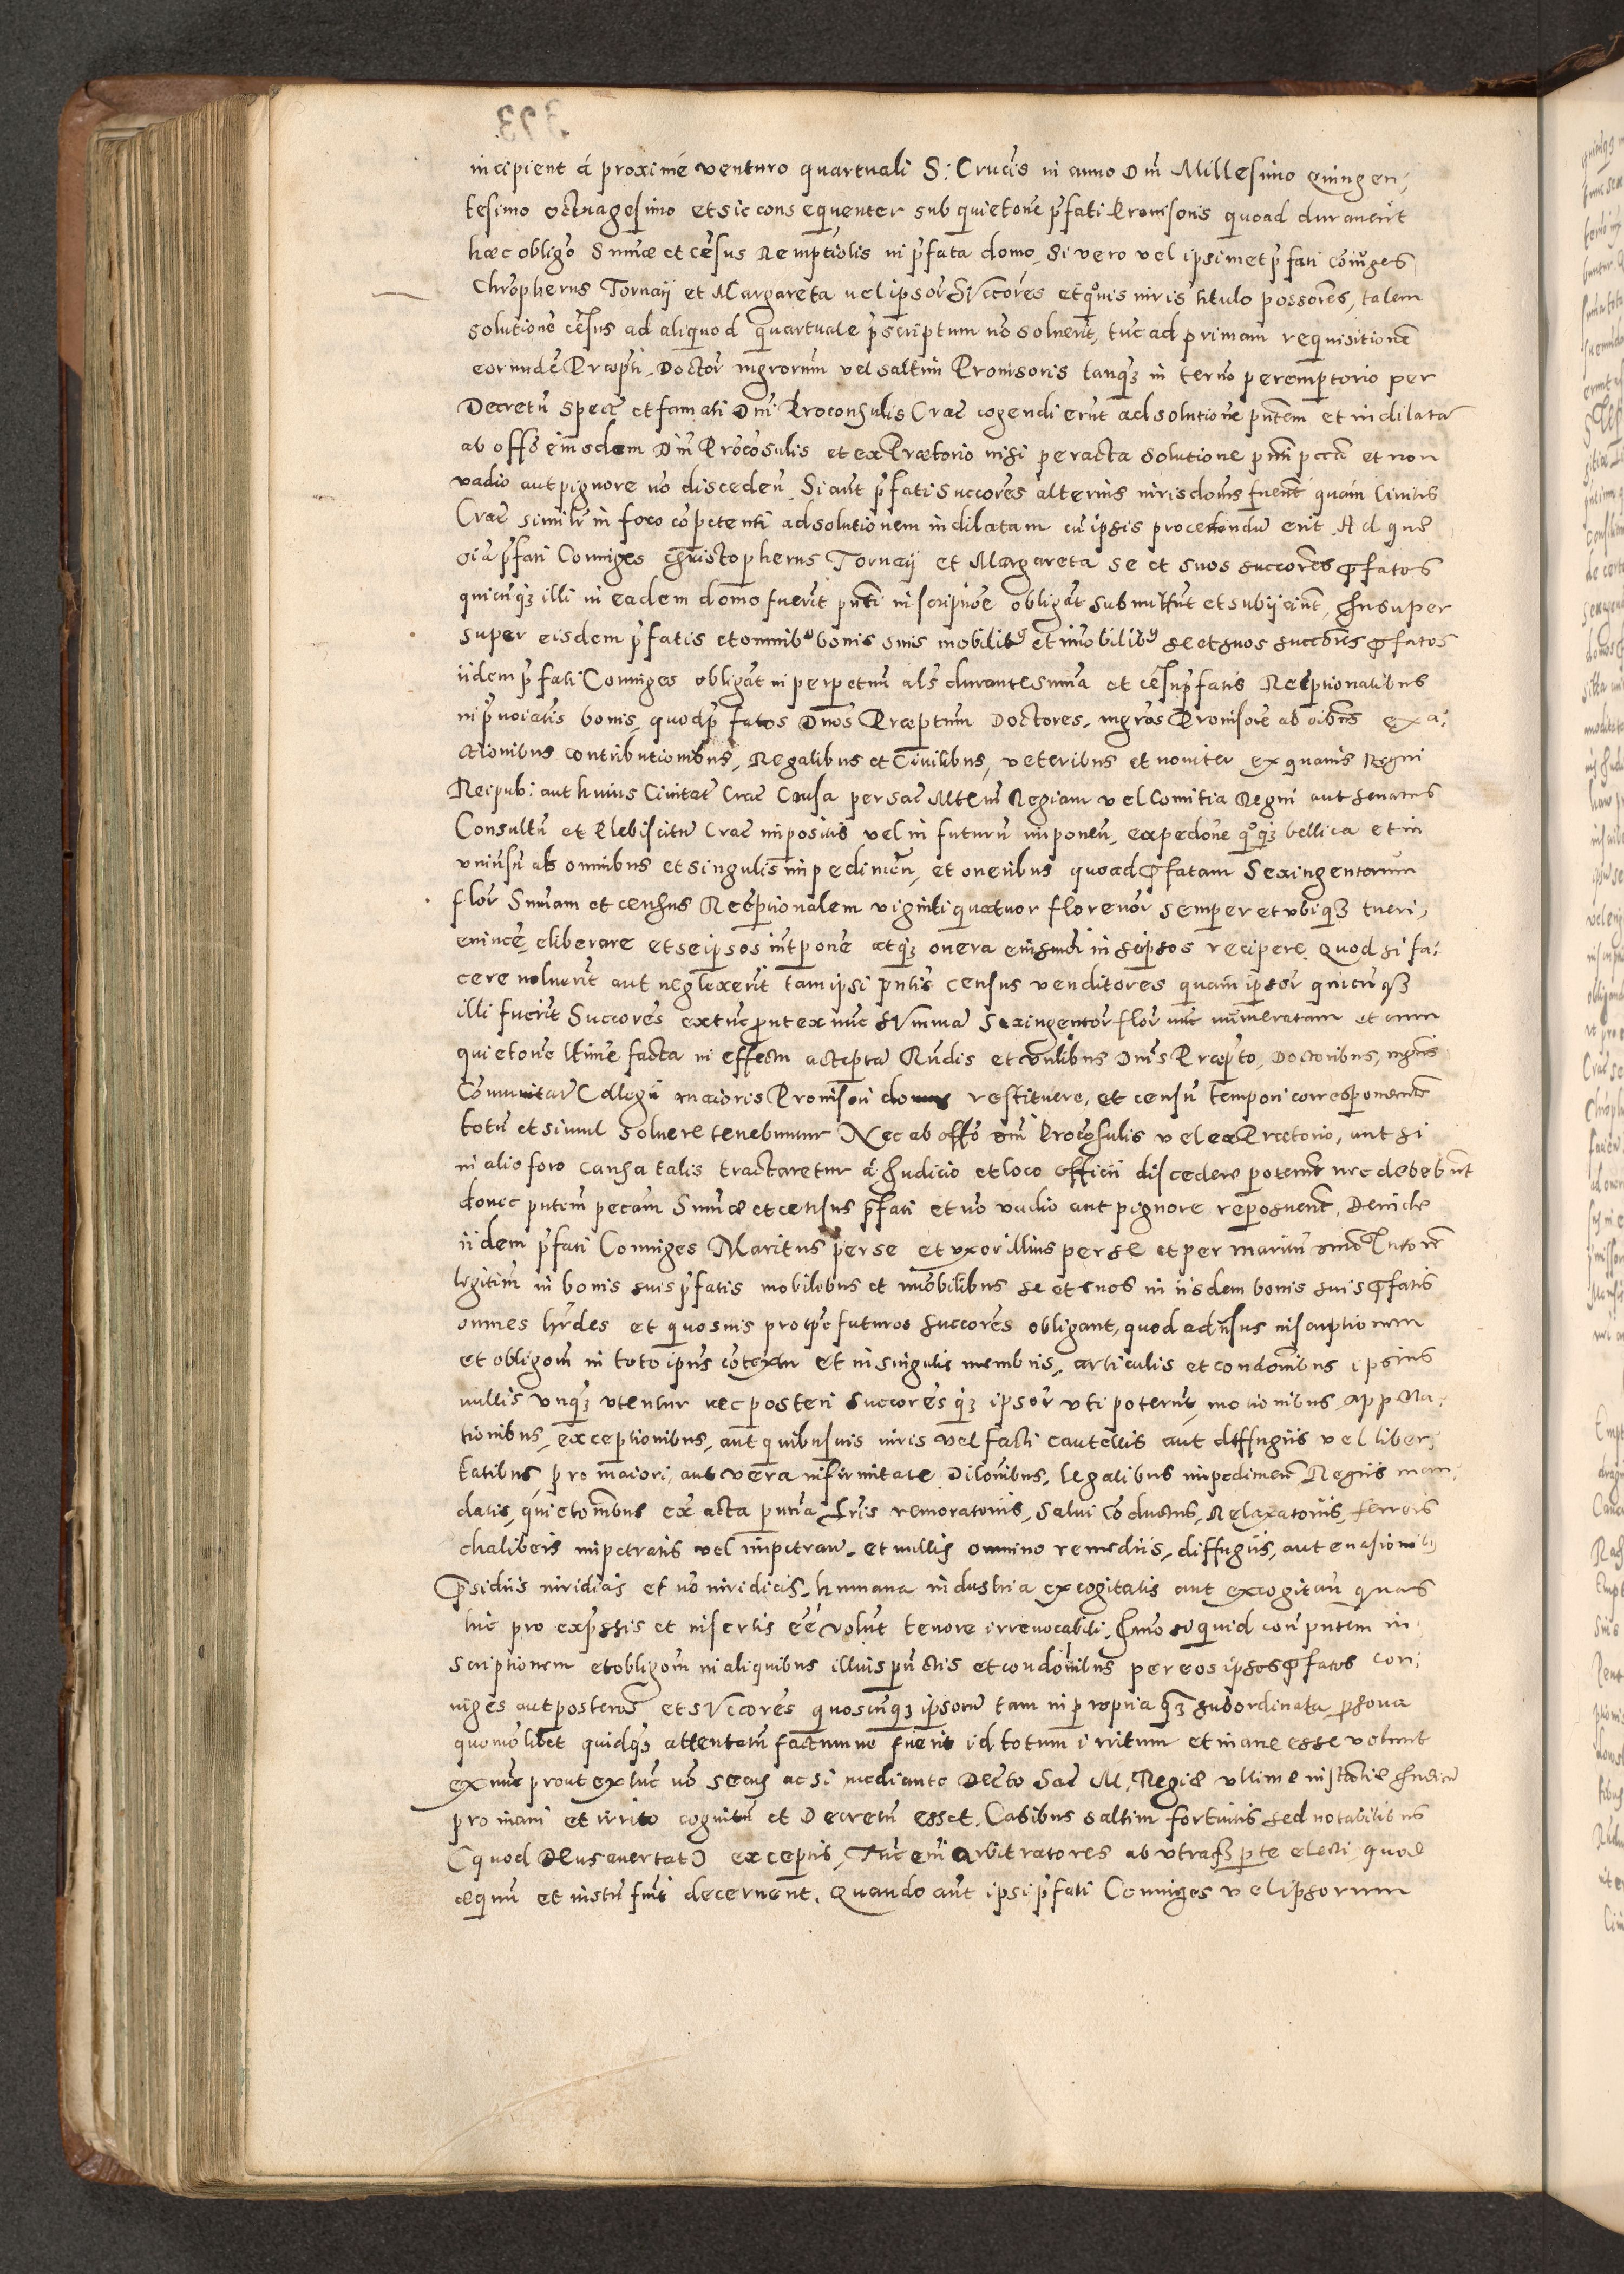 incipient á proximé venturo quartuali S: Crucis in anno Dni Millesimo Quingen,
tesimo octuagesimo et sic consequenter sub quietone pfati Provisoris quoad duraverit
hæc obligo Summæ et cesus Remptiolis in pfata domo, Si vero vel ipsimet pfati coniuges
Chropherus Tornaÿ et Margareta vel ipsor Succores et quovis iuris titulo possores, talem
solutione cesus ad aliquod quartuale pscriptum no solverit, tuc ad primam requisitione
eorunde Præpti, Doctor mgrorum vel saltim Provisoris tanq in termo peremptorio per
Decretu spect et famati Dni Proconsulis Crac cogendi erut ad solutione pntem et indilata
ab offo eiusdem Dni Procosulis et ex Prætorio nisi peracta solutione pnti pccā et non
vadio aut pignore no disceden. Si aut pfati succores alterius iurisdonis fuerit quam Civilis
Crac similr in foro copetenti ad solutionem indilatam cu ipsis procedendu erit. Ad que
oia pfati Coniuges Christopherus Tornaÿ et Margareta se et suos succores pfatos
quicuq illi in eadem domo fuerit pnti inscriptioe obligat submittut et subÿciut, Insuper
super eisdem pfatis et omnibus bonis suis mobilib et imobilib se et suos succores pfatos
iidem pfati Coniuges obligat in perpetuu als durante suma et cesu pfatis Reeptionalibus
in pnoiatis bonis, quod pfatos Dnos Præptum Doctores, mgros Provisore ab oibus exa,
ctionibus contributionibus, Regalibus et Civilibus, veteribus et noviter ex quavis Regni
Reipub: aut huius Civitat Crac Causa per Sac Mtem Regiam vel Comitia Regni aut Senatus
Consultu et Plebiscitu Crac impositis vel in futuru imponen, expedone qoq bellica et in
universu ab omnibus et singulis impedimen, et oneribus quoad pfatam Sexingentorum
flor Sumam et census Reeptionalem viginti quatuor florenor semper et ubiq tueri,
evince, eliberare et seipsos intpone atq onera eiusmodi in seipsos recipere. Quod si fa,
cere noluerit aut neglexerit tam ipsi pntis census venditores quam ipsor quicuq
illi fuerit Succores extuc put ex nuc Summa Sexingentor flor nuc numeratam et cum
quietone ltime facta in effectu accepta Rudis et vnlibus Dnis Præpto, Doctoribus, mgris
Comunitat Collegii maioris Provisori domus restituere, et censu tempori correspondente
totu et simul solvere tenebuntur Nec ab offo dni Procosulis vel ex Prætorio, aut si
in alio foro causa talis tractaretur á Iudicio et loco officii discedere poterut nec debebut
donec pntem pecam Sumæ et census pfati et no vadio aut pignore reposuerit, Deniq
iidem pfati Coniuges Maritus per se et uxor illius per se et per maritu Tutore
legitim in bonis suis pfatis mobilibus et imobilibus se et suos in iisdem bonis suis pfatis
omnes hrdes et quosvis pro tpe futuros succores obligant, quod adusus inscriptionem
et obligom in toto ipius cotextu et in singulis membris, articulis et condonibus ipsius
nullis unq utentur nec posteri succores q ipsor uti poterut, motionibus, appella,
tionibus, exceptionibus, aut quibusvis iuris vel facti cautelis aut diffugiis vel liber,
tatibus, pro maiori, aut vera infirmitate Dilonibus, legalibus impedimen Regiis man,
datis, quietonibus ex acta, lris remoratoriis, Salvi coductus, Relaxatoriis, ferreis
chalibeis impetratis vel impetran, et nullis omnino remediis, diffugiis, aut evasionib
psidiis iuridicis et no iuridicis, humana industria excogitatis aut excogitan quas
hic pro expssis et insertis ee volut tenore irrevocabili. Imo si quid con pntem in,
scriptionem et obligom in aliquibus illius puctis et condonibus per eos ipsos pfatos con,
iuges aut posteros et Succores quoscuq ipsoru tam in propria q subordinata psona
quomolibet quidq attentatu factumve fuerit id totum irritum et inane esse volunt
ex nuc prout ex tuc no secus ac si mediante Decto Sac M. Regiæ ultime instantiæ Iudiciu
pro inani et irrito cognitu et Decretu esset. Casibus saltim fortuitis sed notabilibus
(quod Deus avertat) exceptis, Tuc em arbitratores ab utraq pte electi quod
æquu et iustu fuit decernent. Quando aut ipsi pfati Coniuges vel ipsorum